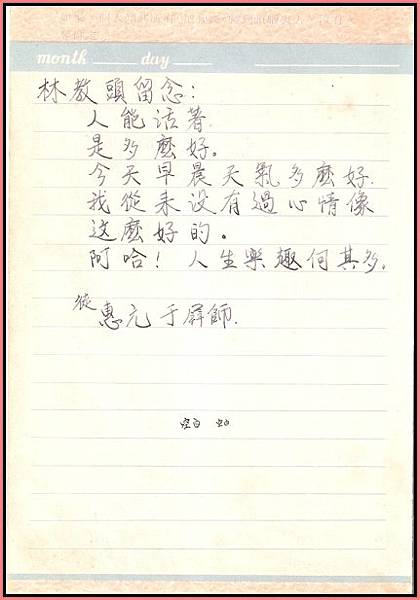 month day
林教頭留念：
人能活著
是多麼好。
今天早晨天氣多麼好.
我從来没有過心情像
这麼好的。
阿哈！人生樂趣何其多.
從
惠元于屏師.